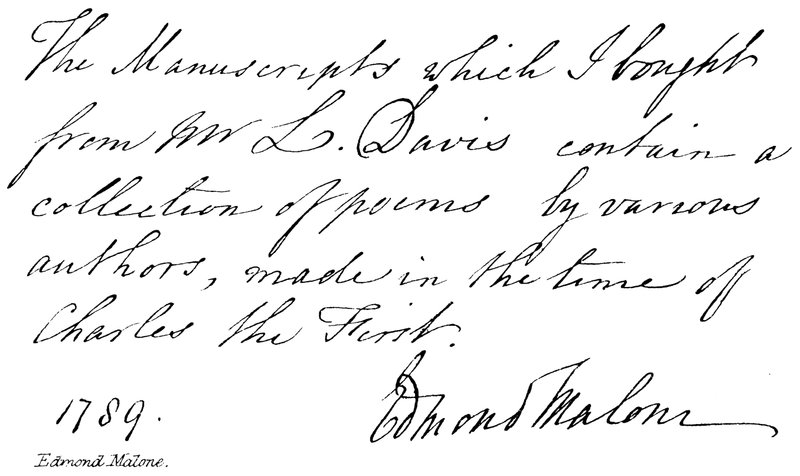 The Manuscripts which I bought
from Mr L. Davis contain a
collection of poems by various
authors, made in the time of
Charles the First.
1789.
Edmond Malone
Edmond Malone.